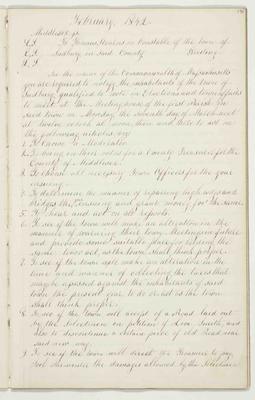 February, 1842
Middlesex, ss.
L.S. To Thomas Stearns a Constable of the town of
L.S. Sudbury in said County Greeting
L.S.
In the name of the Commonwealth of Massachusetts
you are required to notify the inhabitants of the town of
Sudbury qualified to vote in Elections and town affairs
to meet at the Meetinghouse of the first Parish in
said town on Monday the seventh day of March next
at twelve o'clock at noon, then and there to act on
the following articles, viz,
1. To Choose a Moderator.
2. To bring in their votes for a County Treasurer for the
County of Middlesex
3. To choose all necessary Town Officers for the year
ensuing.
4. To determine the manner of repairing highways and
bridges the ensuing and grant money for the same.
5. To hear and act on all reports.
6. To see if the town will make an alteration in the
manner of warning their town Meetings in future
and provide some suitable place for holding the
same &c as the town shall think proper.
7. To see if the town will make an alteration in the
time and manner of collecting the taxes that
may be assessed against the inhabitants of said
town the present year to do or act as the town
shall think proper.
8. To see if the town will accept of a Road laid out
by the Selectmen on petition of Smith, and
also to discontinue a certain piece of old Road near
said new way.
9. To see if the town will direct the Treasurer to pay
the damages allowed by the Selectmen